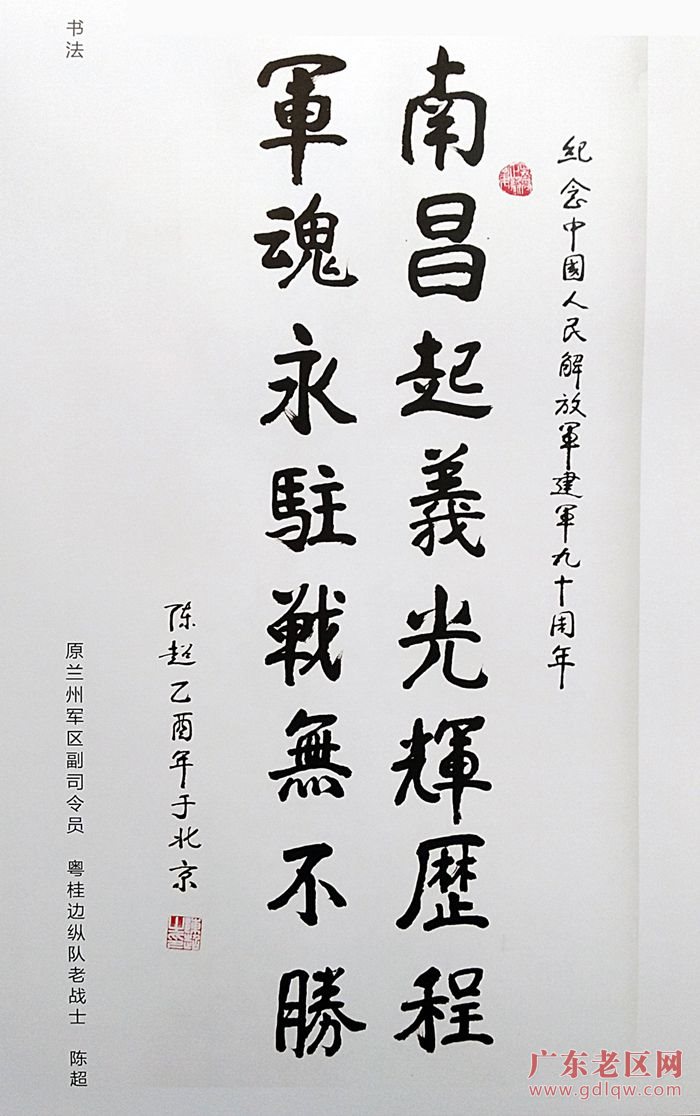 书法
紀念中國人民解放軍建軍九十周年
南昌起義光輝歷程
軍魂永駐戦無不勝
陈超乙酉年于北京
原兰州军区副司令员 粤桂边纵队老战士 陈超
广东老区网
www.gdlqw.com